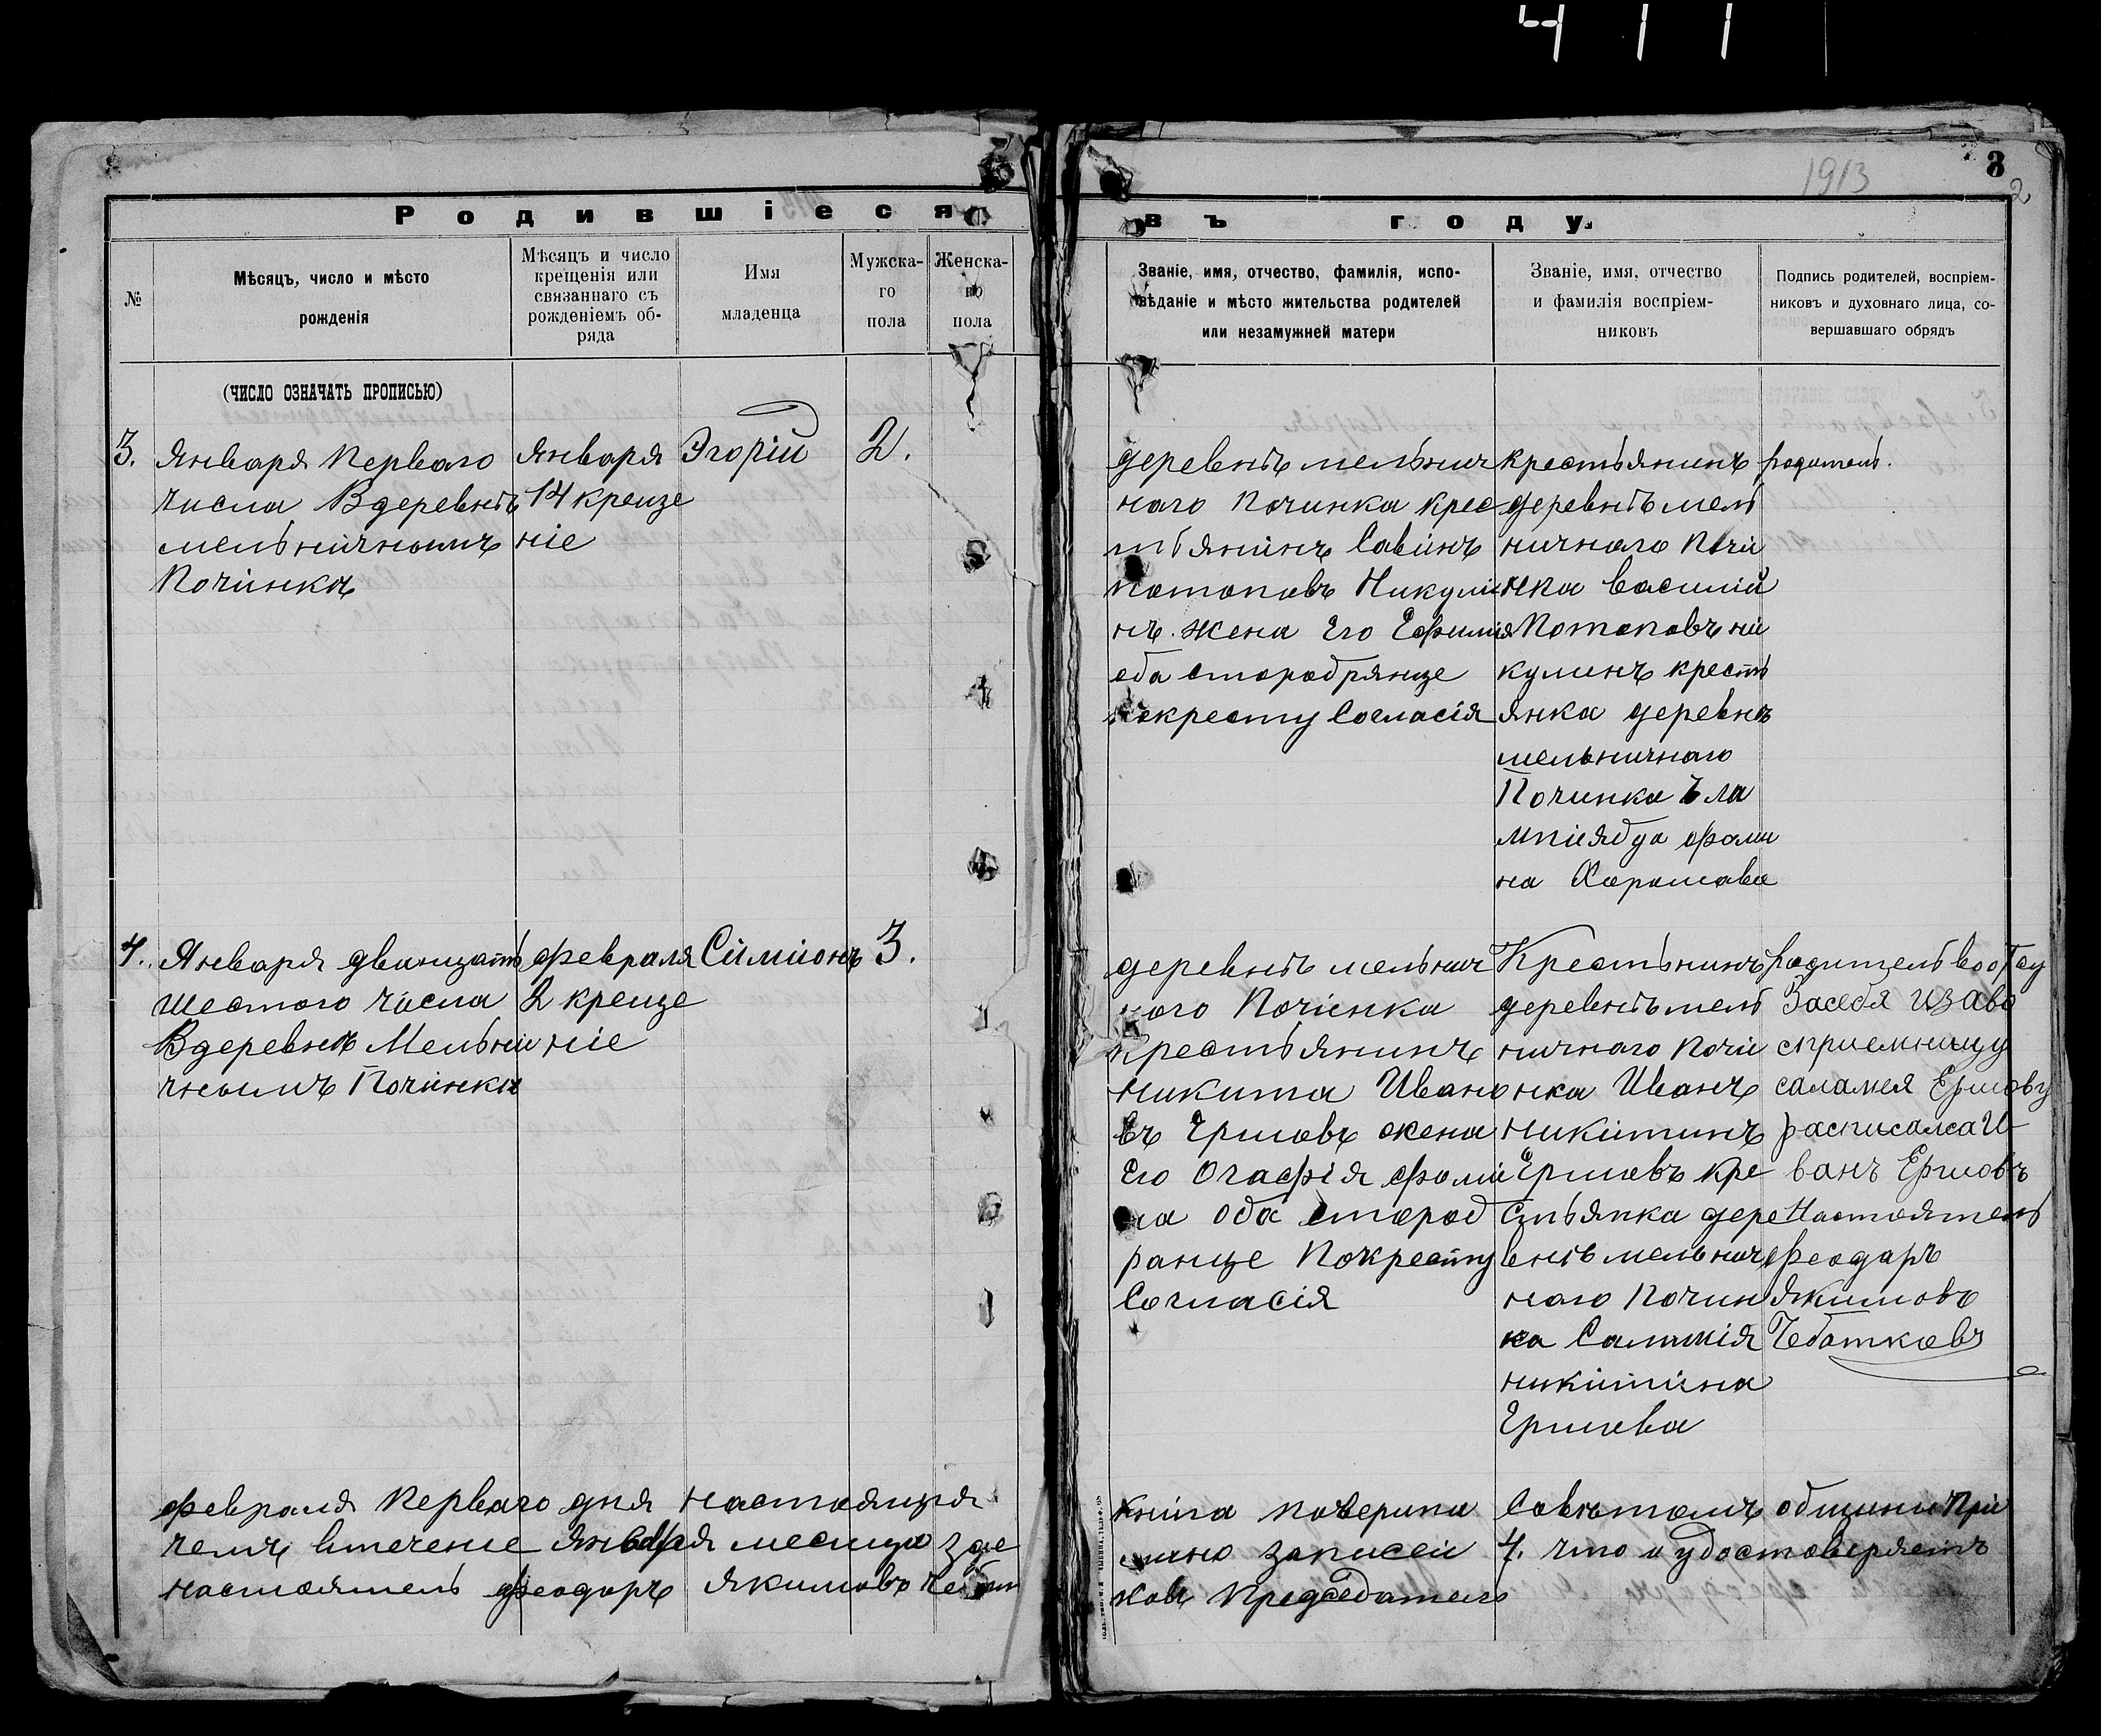 411
1913
8
2
Родившіеся
въ году.
№
Мѣсяцъ, число и мѣсто
рожденія
Мѣсяцъ и число
крещенія или
связаннаго съ
рожденіемъ об-
ряда
Имя
младенца
Мужска-
го
пола
Женска-
го
пола
Званіе, имя, отчество, фамилія, испо-
вѣданіе и мѣсто жительства родителей
или незамужней матери
Званіе, имя, отчество
и фамилія воспріем-
никовъ
Подпись родителей, воспріем-
никовъ и духовнаго лица, со-
вершавшаго обрядъ
(ЧИСЛО ОЗНАЧАТЬ ПРОПИСЬЮ)
3.
Января Перваго
числа Вдеревнѣ
мельничномъ
Починкѣ
Января
14 креще
ніе
Эгорій
2.
деревнѣ мельнич
наго Починка крес
тьянинъ Савинъ
Потоповъ Никули
нъ. жена Его Ефимия
оба старобрянце
покресту Согласія
крестьянинъ
деревнѣ мель
ничнаго Почи
нка Василий
Потоповъ ни
кулинъ кресть
янка деревнѣ
мельничнаго
Починка
родитель.
4.
Января двацать
шестого числа
Вдеревнѣ Мельни
чномъ Починки
февраля
2 креще
ніе
Симионъ
3.
деревнѣ мельнич
ного Починка
крестьянинъ
никита Ивано
въ Ершовъ жена
Его Огафія фоми
на оба старооб
ранце Покресту
Согласія
Крестьнинъ
деревнѣ мель
ничнаго Почи
нка Иванъ
никитинъ
Ершовъ кре
стьянка дере
внѣ мельнич
наго Почин
ка Саламія
никитина
Ершова
родитель
Засебя изаво
сприемницу
саламея Ершову
расписалса И
ванъ Ершовъ
Настоятель
феодаръ
Якимовъ
Чеботковъ
февраля Перваго дня настоящия
книга поверина Советомъ общины При
чемъ втечение января месица
записей 4. что и удостоверяетъ
настоятель феодоръ Якимовъ Чебот
ковъ председатель